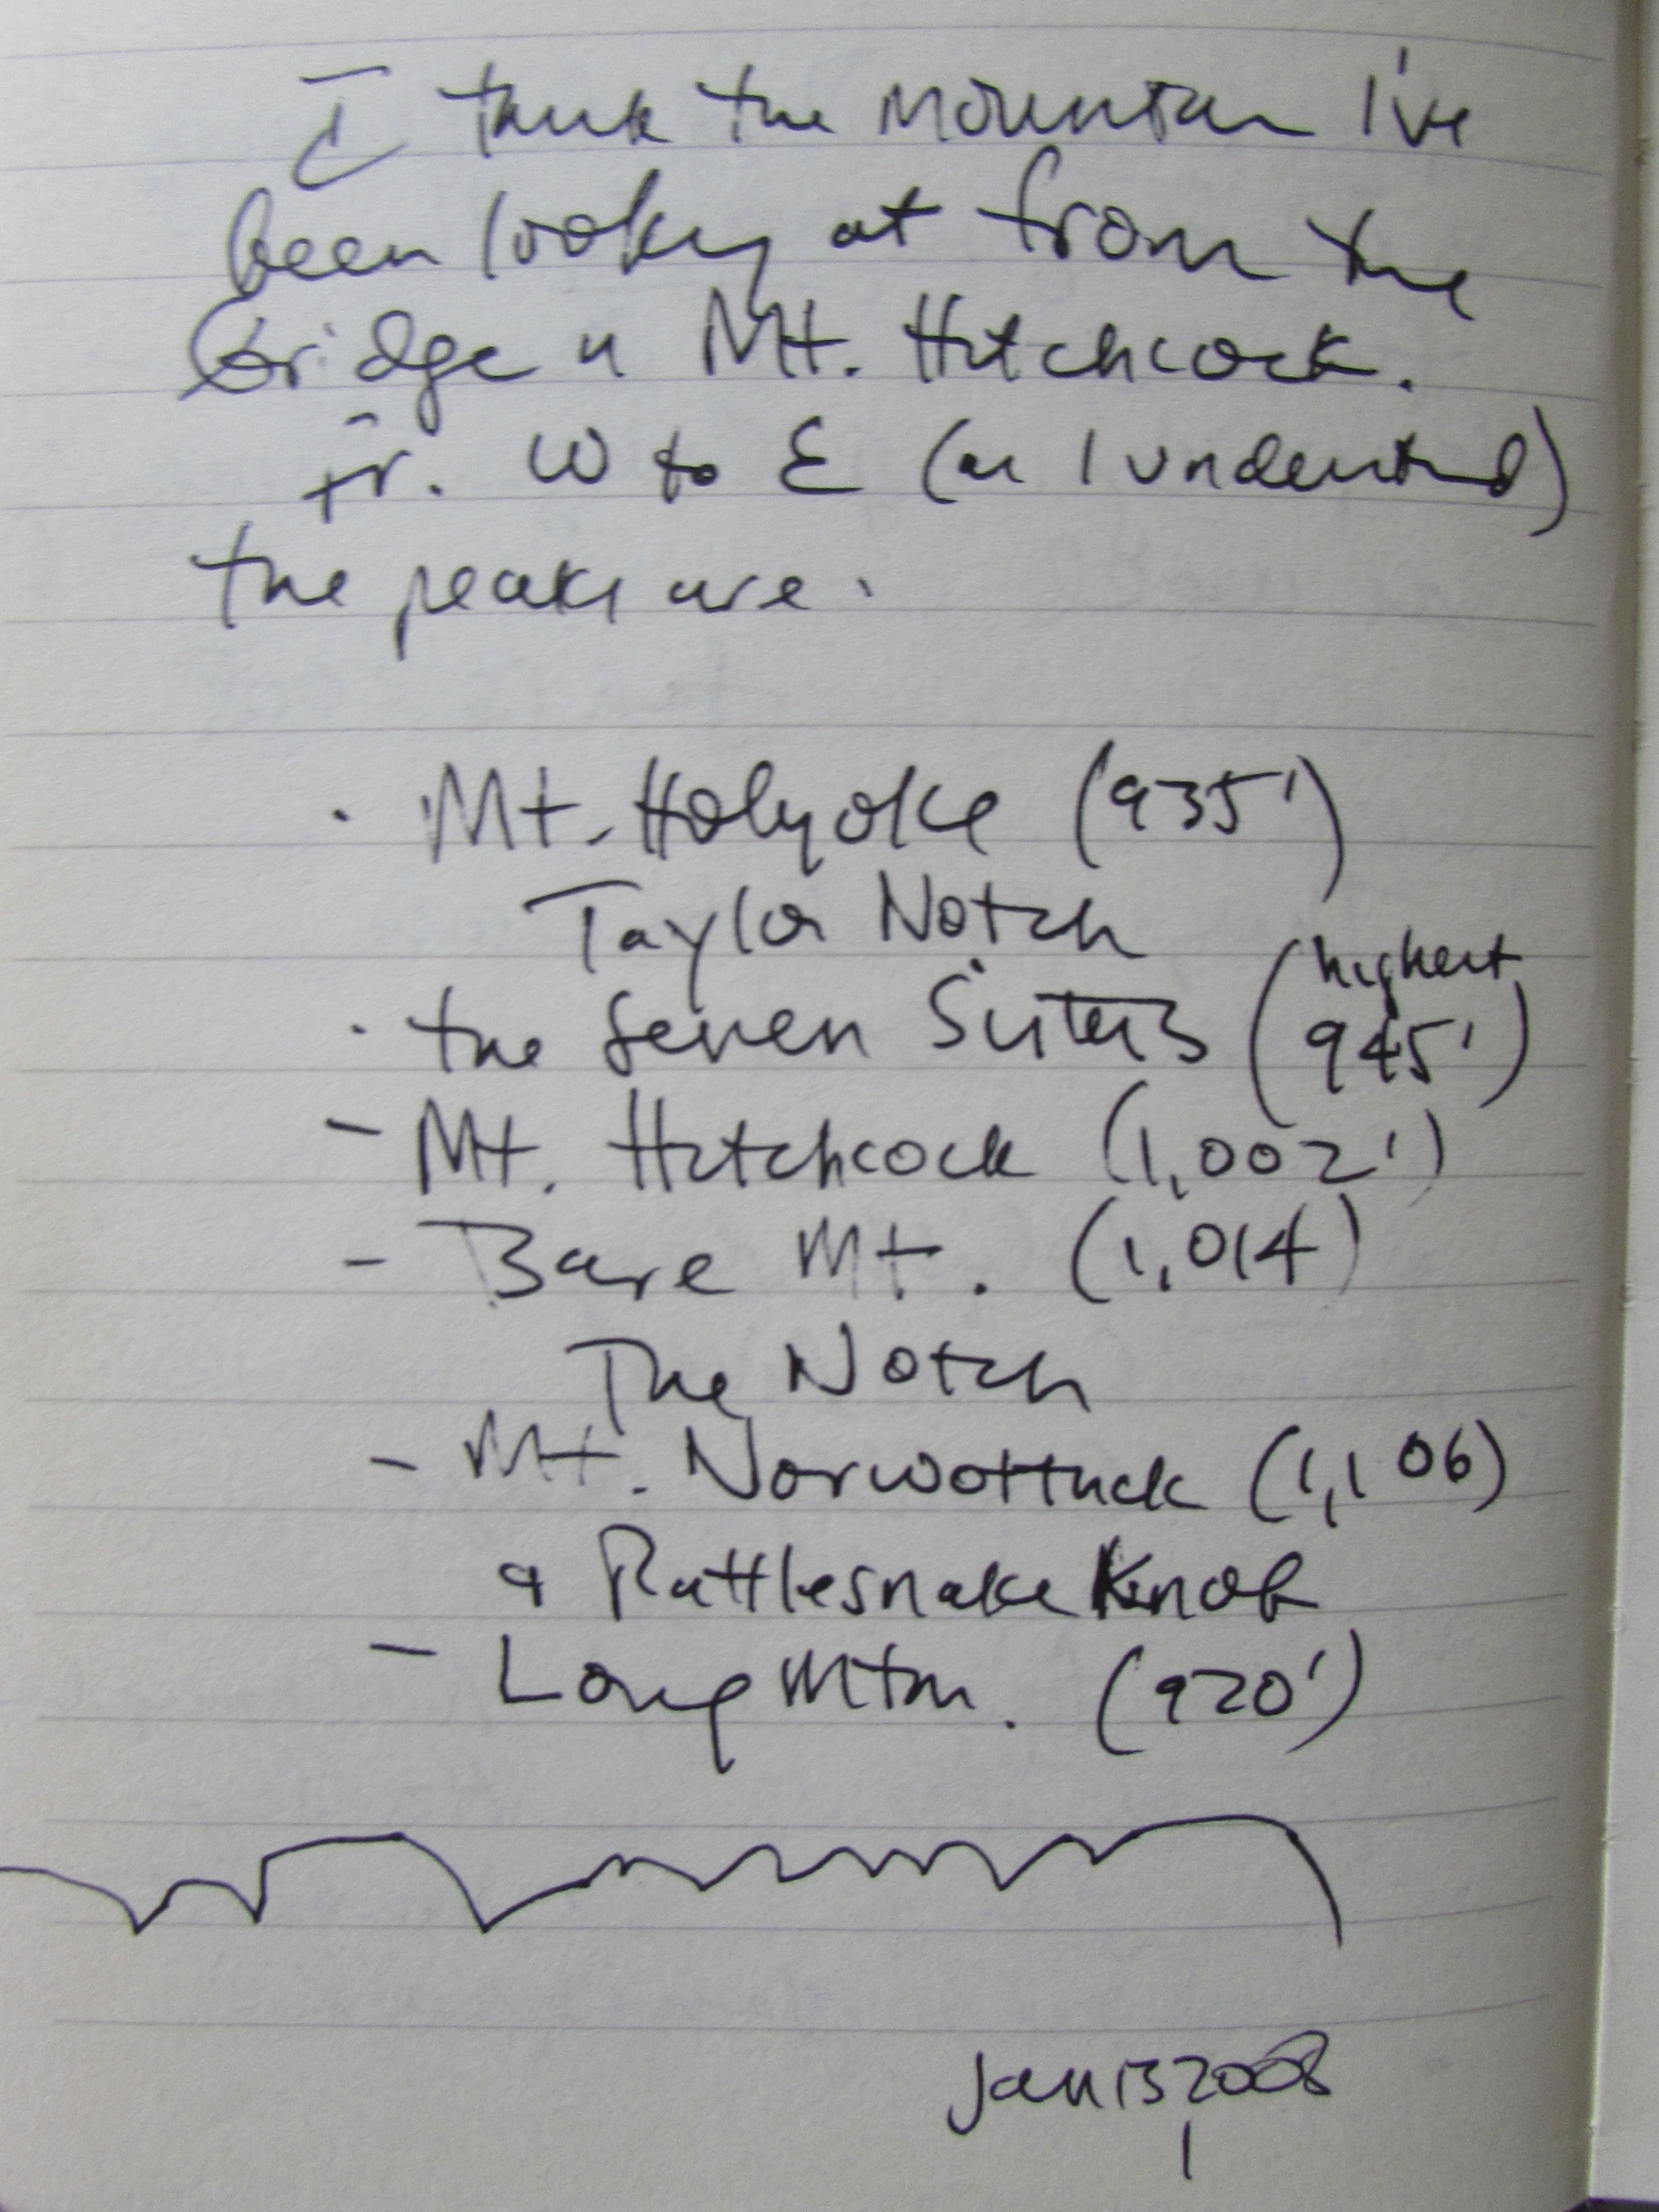 I think the mountain I've
been looking at from the
bridge is Mt. Hitchcock.
fr. W to E (as I understand)
the peaks are:
· Mt. Holyoke (935')
Taylor Notch
· the Seven Sisters (highest
945')
- Mt. Hitchcock (1,002')
- Bare Mt. (1,014)
The Notch
- Mt. Norwottuck (1,106)
& Rattlesnake Knob
- Long Mtn. (920')
Jan 13, 2008